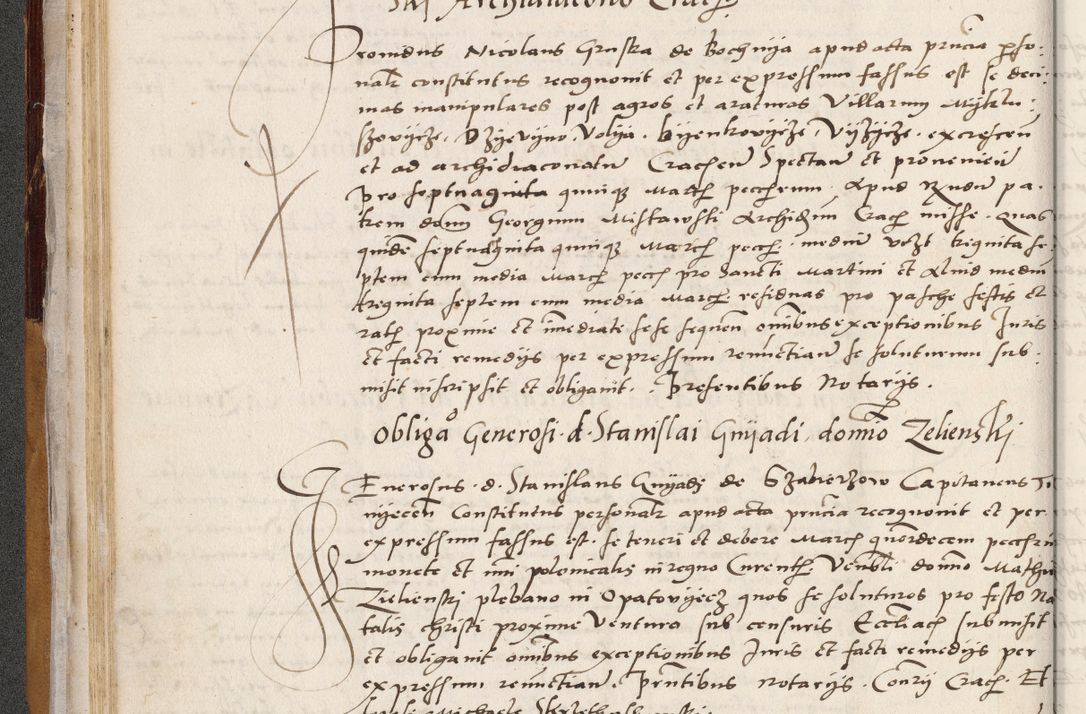 Archidiacono Crac
Providus Nicolaus Gruska de Bochnya apud acta pncia perso:
nalr constitutus recognovit et per expressum fassus est se deci:
mas manipulares post agros et araturas villarum
Dzyevyno Volya . Byenkovycze . Vyzycze . excrescen
et ad archidiaconatu Cracien spectan et provenien
pro septuaginta quinque March pecchrum . apud Rndu pa.
trem dnm Georgium Mistawski Archidm Crac . quas
quide septuaginta quinque March pecch . mediu triginta se
ptem cum media March pecch pro sancti Martini et aliud mediu
trignita septem cum media March residuas pro pasche festis et
ratis proxime et imediate sese sequen omnibus exceptionibus Juris
et facti remedijs per expressum renuctian se soluturum sub.
misit inscripsit et obligavit . Presentibus Notarijs .
Obliga Generosi d Stanislai Gnyadi domino Zelienskj
Generosus . d . Stanislaus Gnyady de Szabierzow Capitaneus
nyecen Constitutus personalr apud acta pncia recognovit et per
expressum fassus est . se teneri et debere March quordecem pecchrn
monete et nui polonicalis in regno Curenth Venbli domino Mathie
Zielienskj plebano in Opatovyecz quos se soluturos pro festo Na
talis christi proxime ventura sub censuris Eccliach submisit
et obligavit omnibus exceptionibus Juris et facti remedijs per
expressum renuctian . Prntibus notarijs . Conrij Crac . Et
Michaele